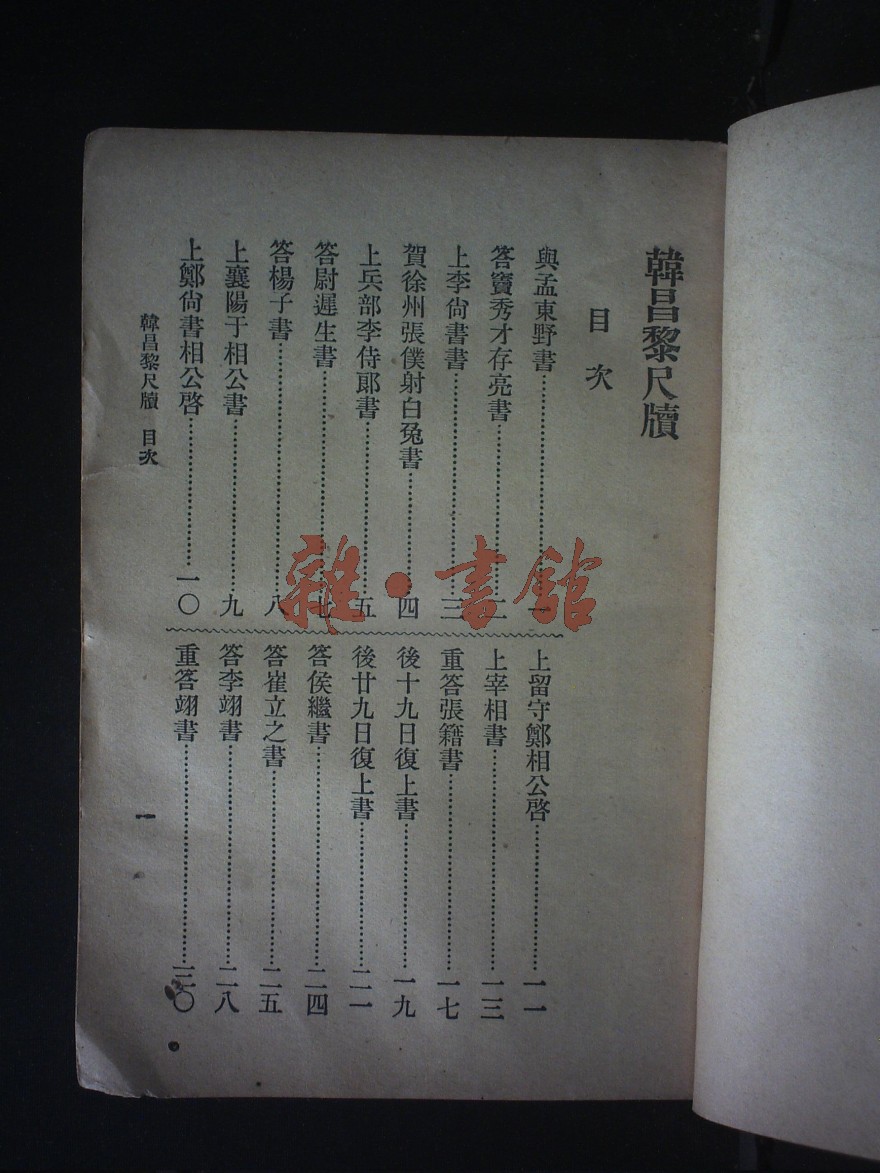 韓昌黎尺牘
目次
與孟東野書……一
答竇秀才存亮書……二
上李尙書書……三
賀徐州張僕射白兔書……四
上兵部李侍郞書……五
答尉遲生書……七
答楊子書……八
上襄陽于相公書……九
上鄭尙書相公啓……一〇
上留守鄭相公啓……一一
上宰相書……一三
重答張籍書……一七
後十九日復上書……一九
後廿九日復上書……二一
答侯繼書……二四
答崔立之書……二五
答李翊書……二八
重答翊書……三〇
韓昌黎尺牘 目次
一
雜·書館